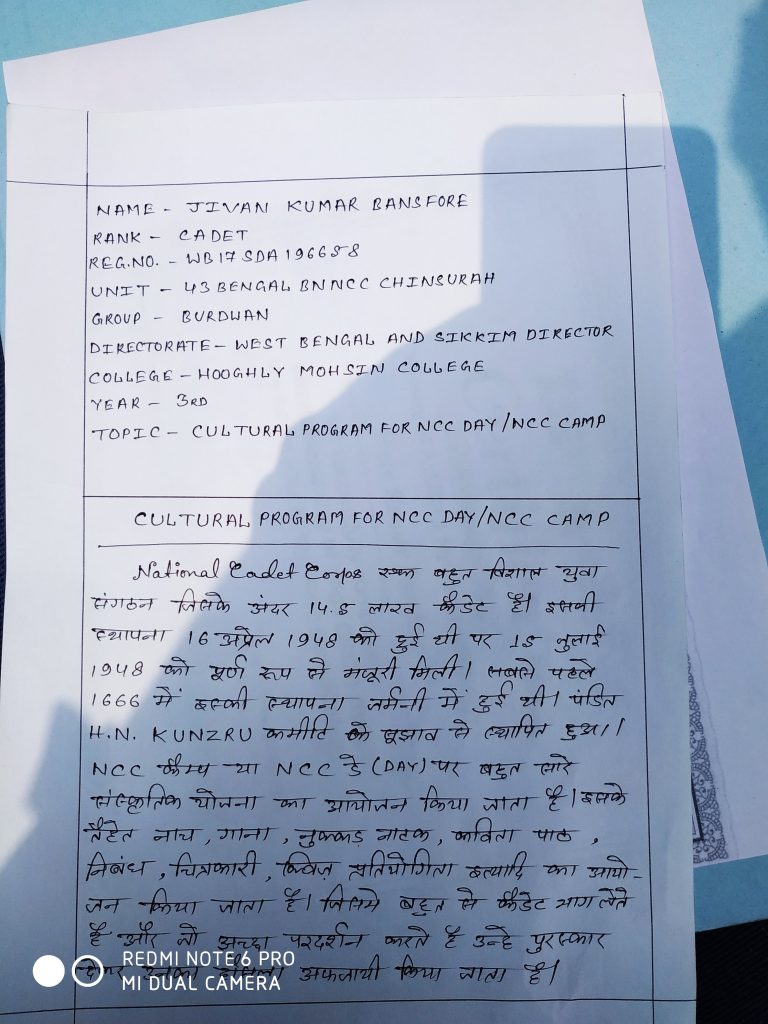 NAME - JIVAN KUMAR BANSFORE
RANK - CADET
REG.NO. - WB17SDA196658
UNIT - 43 BENGAL BN NCC CHINSURAH
GROUP - BURDWAN
DIRECTORATE - WEST BENGAL AND SIKKIM DIRECTOR
COLLEGE - HOOGHLY MOHSIN COLLEGE
YEAR - 3RD
TOPIC - CULTURAL PROGRAM FOR NCC DAY/NCC CAMP
CULTURAL PROGRAM FOR NCC DAY/NCC CAMP
National Cadet Corps एक बहुत विशाल युवा
संगठन जिसके अंदर 14.5 लाख कैडेट है। इसकी
स्थापना 16 अप्रैल 1948 को हुई थी पर 15 जुलाई
1948 को पूर्ण रूप से मंजूरी मिली। सबसे पहले
1666 में इसकी स्थापना जर्मनी में हुई थी। पंडित
H.N. KUNZRU कमीटि के सूझाव से स्थापित हुआ।
NCC कैम्प या NCC डे (DAY) पर बहुत सारे
संस्कृतिक योजना का आयोजन किया जाता है। इसके
तैहेत नाच, गाना, नुक्कड़ नाटक, कविता पाठ,
निबंध, चित्रकारी, क्विज़ प्रतियोगिता इत्यादि का आयो-
जन किया जाता है। जिसमे बहुत से कैडेट भाग लेते
है और जो अच्छा परदर्शन करते है उन्हे पुरस्कार
देकर उनका हौसला अफजायी किया जाता है।
REDMI NOTE 6 PRO
MI DUAL CAMERA